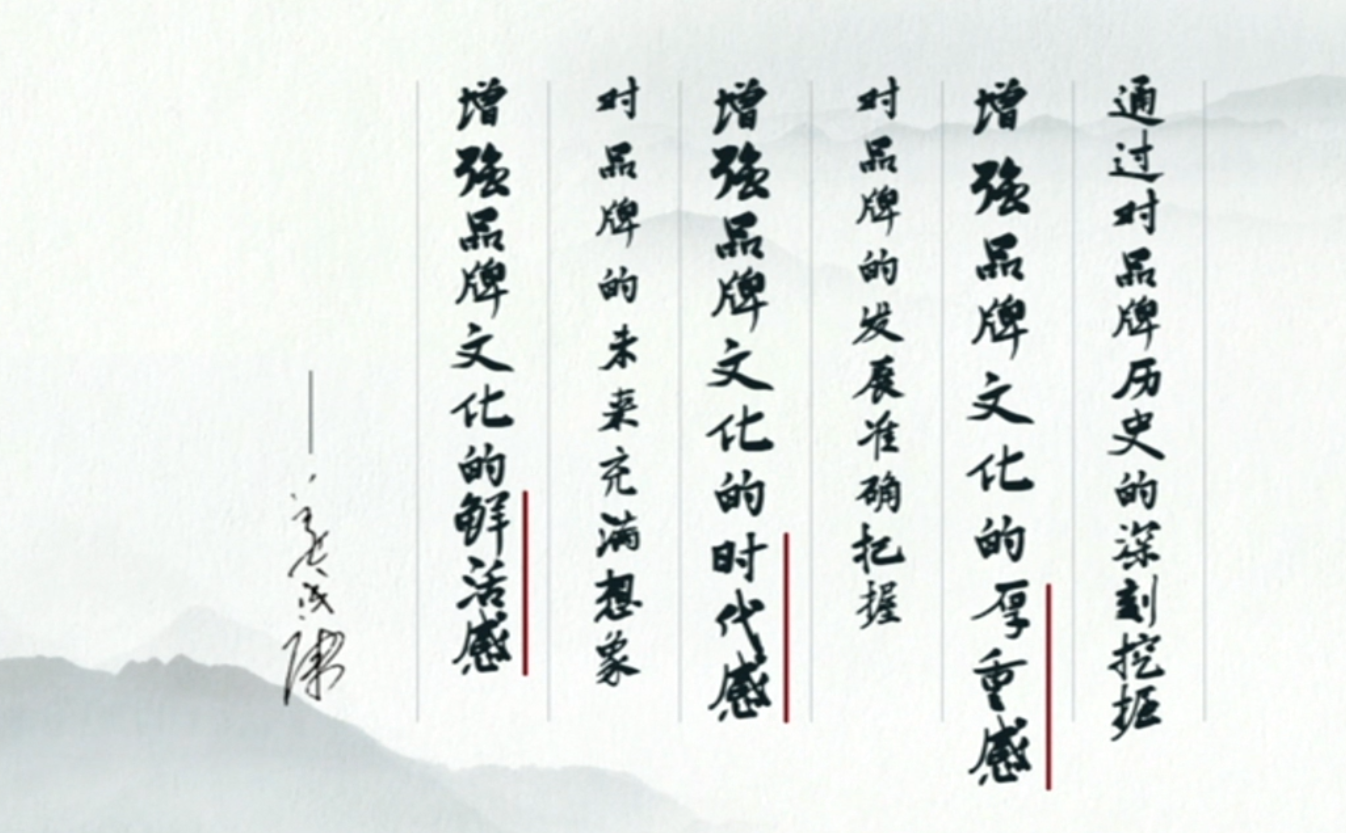 通过对品牌历史的深刻挖掘
增强品牌文化的厚重感
对品牌的发展准确把握
增强品牌文化的时代感
对品牌的未来充满想象
增强品牌文化的鲜活感